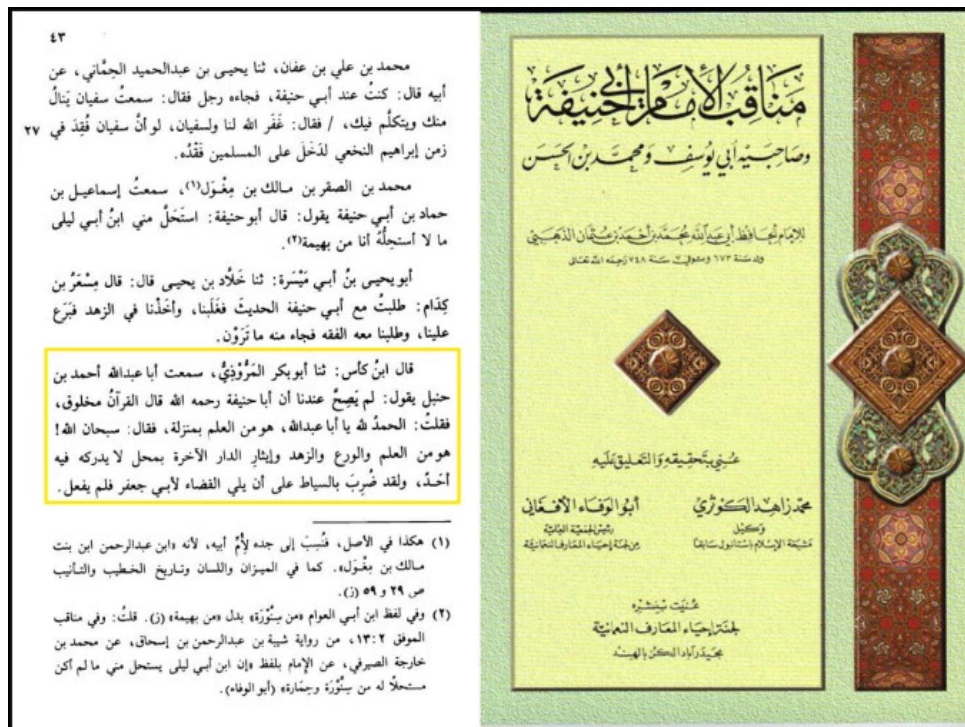 ٤٣
محمد بن علي بن عفان، ثنا يحيى بن عبدالحميد الحِمَّاني، عن
أبيه قال: كنتُ عند أبـي حنيفة، فجاءه رجل فقال: سمعتُ سفيان يَنالُ
منك ويتكلَّم فيك، / فقال: غَفَر الله لنا ولسفيان، لو أنَّ سفيان فُقِدَ في ٢٧
زمن إبراهيم النخعي لدَخَلَ على المسلمين فَقْدُه.
محمد بن الصقر بن مـالك بن مِغْـوَل(١)، سمعتُ إسماعيـل بن
حماد بن أبـي حنيفة يقول: قال أبو حنيفة: استَحَلَّ مني ابنُ أبـي ليلى
ما لا أستحِلُّهُ أنا من بهيمة(٢).
أبو يحيى بنُ أبـي مَيْسَرة: ثنا خَلَّاد بن يحيى قال: قال مِسْعَرُ بن
كِدَام: طلبتُ مع أبـي حنيفة الحديثَ فغَلَبنا، وأخَذْنا في الزهد فبَرَع
علينا، وطلبنا معه الفقه فجاء منه ما تَرَوْن.
قال ابنُ كأس: ثنا أبو بكر المَرُّوْذِيُّ، سمعت أبا عبدالله أحمد بن
حنبل يقول: لم يَصِحَّ عندنا أن أبا حنيفة رحمه الله قال القرآنُ مخلوق،
فقلتُ: الحمدُ لله يا أبا عبدالله، هو من العلم بمنزلة، فقال: سبحان الله!
هو من العلم والورع والزهد وإيثارِ الدار الآخرة بمحل لا يدركه فيه
أحَدٌ، ولقد ضُرِبَ بالسياط على أن يلي القضاء لأبـي جعفر فلم يفعل.
(١) هكذا في الأصل، فنُسِبَ إلى جده لِأُمِّ أبيه، لأنه «ابن عبدالرحمن ابن بنت
مـالك بن مِغْـوَل». كما في الميـزان واللسان وتـاريخ الخطيب والتـأنيب
ص ٢٩ و ٥٩ (ز).
(٢) وفي لفظ ابن أبـي العوام «من سِنَّوْرَة» بدل «من بهيمة» (ز). قلتُ: وفي مناقب
الموفق ١٣:٢، من رواية شيبة بن عبدالرحمن بن إسحاق، عن محمد بن
خارجة الصيرفي، عن الإمام بلفظ «إن ابن أبـي ليلى يستحل مني ما لم أكن
مستحلًّا له من سِنَّوْرَة وحِمَارة» (أبو الوفاء).
مَناقبُ الإمَامِ أبي حَنيفَة
وصَاحبَيْه أبي يُوسُف ومحمَّد بن الحسَن
للإمَام الحَافِظ أبي عَبد الله مُحمَّد بن أحمَد بن عُثمان الذهَبيّ
ولد سَنة ٦٧٣ وتوفيّ سَنة ٧٤٨ رَحِمَه الله تعالى
عُني بتَحقيقه وَالتَعليق عَليَه
محمّد زاهِد الكَوثري
أبو الوَفاء الأفغاني
وَكيل
رئيسُ الجمعيَّة العِلميَّة
مَشيخَة الإسلام بإستانبول سَابقًا
مِن لجنَة إحيَاء المعَارف النّعمانيّة
عُنيَت بنَشره
لجنَة إحيَاء المَعَارف النّعمانيّة
بحَيدرآباد الدّكن بالهند